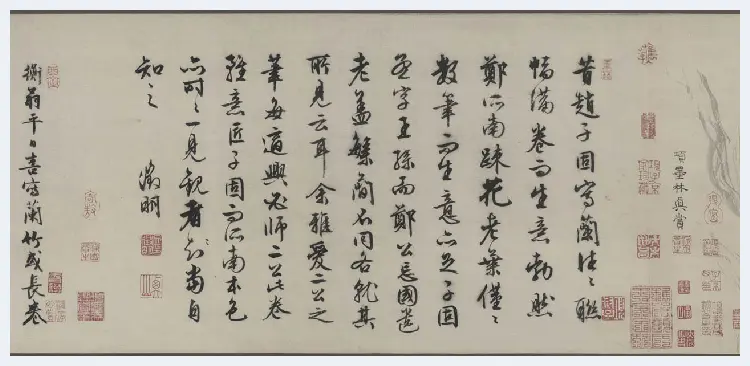 項墨林真賞
昔趙子固寫蘭往〻聯
幅滿卷而生意勃然
鄭所南疎花老葉僅〻
數筆而生意亦足子固
王孫而鄭公忘國遺
老蓋繁簡不同各就其
所見云耳余雅愛二公之
筆每適興必師二公此卷
雖意匠子固而所南本色
亦時〻一見觀者當自
知之
徵明
衡翁平日喜寫蘭竹或長卷